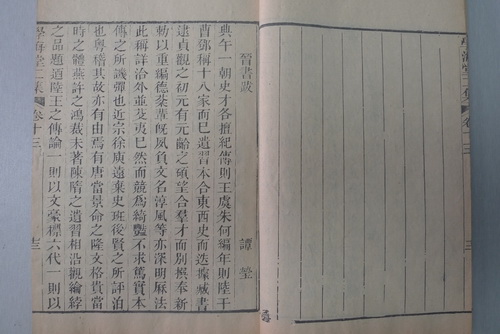 晉書跋
譚瑩
典午一朝史才各擅紀傳則王虞朱何編年則陸干
曹鄧稱十八家而已遺習本合東西史而迭㩀臧書
建貞觀之初元有元齡之碩望合羣才而別撰奉新
勅以重編德棻輩旣夙負文名淳風等亦深明厤法
此稱詳洽外並蔑夷巳然而競爲綺艷不求篤實本
傳之所譏彈也近宗徐庾遠棄史班後賢之所評泊
也粤稽其故亦有由焉有唐當景命之隆文格貴當
時之體燕許之鴻裁未著陳隋之遺習相沿觀綸綍
之品題道陸王之傳論一則以文豪標六代一則以
學海堂二集
卷十三